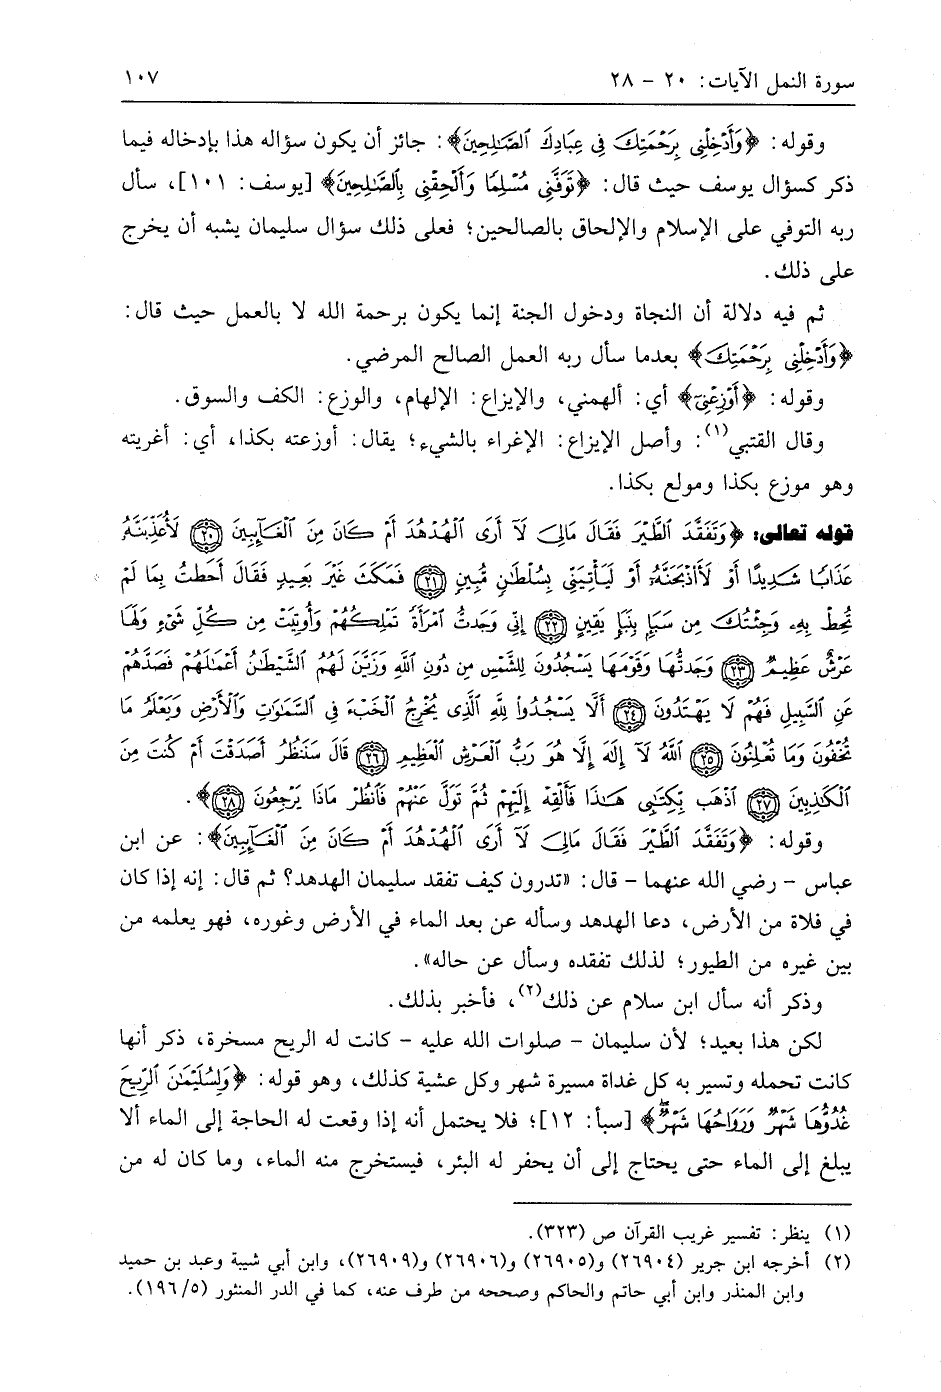 سورة النمل الآيات: ٢٠ - ٢٨ ١٠٧
وقوله: ﴿وَأَدْخِلْنِى بِرَحْمَتِكَ فِى عِبَادِكَ ٱلصَّـٰلِحِينَ﴾: جائز أن يكون سؤاله هذا بإدخاله فيما
ذكر كسؤال يوسف حيث قال: ﴿تَوَفَّنِى مُسْلِمًا وَأَلْحِقْنِى بِٱلصَّـٰلِحِينَ﴾ [يوسف: ١٠١]، سأل
ربه التوفي على الإسلام والإلحاق بالصالحين؛ فعلى ذلك سؤال سليمان يشبه أن يخرج
على ذلك.
ثم فيه دلالة أن النجاة ودخول الجنة إنما يكون برحمة الله لا بالعمل حيث قال:
﴿وَأَدْخِلْنِى بِرَحْمَتِكَ﴾ بعدما سأل ربه العمل الصالح المرضي.
وقوله: ﴿أَوْزِعْنِىٓ﴾ أي: ألهمني، والإيزاع: الإلهام، والوزع: الكف والسوق.
وقال القتبي(١): وأصل الإيزاع: الإغراء بالشيء؛ يقال: أوزعته بكذا، أي: أغريته
وهو موزع بكذا ومولع بكذا.
قوله تعالى: ﴿وَتَفَقَّدَ ٱلطَّيْرَ فَقَالَ مَالِىَ لَآ أَرَى ٱلْهُدْهُدَ أَمْ كَانَ مِنَ ٱلْغَآئِبِينَ ﴿٢٠﴾ لَأُعَذِّبَنَّهُۥ
عَذَابًا شَدِيدًا أَوْ لَأَاْذْبَحَنَّهُۥٓ أَوْ لَيَأْتِيَنِّى بِسُلْطَـٰنٍ مُّبِينٍ ﴿٢١﴾ فَمَكَثَ غَيْرَ بَعِيدٍ فَقَالَ أَحَطتُ بِمَا لَمْ
تُحِطْ بِهِۦ وَجِئْتُكَ مِن سَبَإٍۭ بِنَبَإٍ يَقِينٍ ﴿٢٢﴾ إِنِّى وَجَدتُّ ٱمْرَأَةً تَمْلِكُهُمْ وَأُوتِيَتْ مِن كُلِّ شَىْءٍ وَلَهَا
عَرْشٌ عَظِيمٌ ﴿٢٣﴾ وَجَدتُّهَا وَقَوْمَهَا يَسْجُدُونَ لِلشَّمْسِ مِن دُونِ ٱللَّهِ وَزَيَّنَ لَهُمُ ٱلشَّيْطَـٰنُ أَعْمَـٰلَهُمْ فَصَدَّهُمْ
عَنِ ٱلسَّبِيلِ فَهُمْ لَا يَهْتَدُونَ ﴿٢٤﴾ أَلَّا يَسْجُدُوا۟ لِلَّهِ ٱلَّذِى يُخْرِجُ ٱلْخَبْءَ فِى ٱلسَّمَـٰوَٰتِ وَٱلْأَرْضِ وَيَعْلَمُ مَا
تُخْفُونَ وَمَا تُعْلِنُونَ ﴿٢٥﴾ ٱللَّهُ لَآ إِلَـٰهَ إِلَّا هُوَ رَبُّ ٱلْعَرْشِ ٱلْعَظِيمِ ﴿٢٦﴾ قَالَ سَنَنظُرُ أَصَدَقْتَ أَمْ كُنتَ مِنَ
ٱلْكَـٰذِبِينَ ﴿٢٧﴾ ٱذْهَب بِّكِتَـٰبِى هَـٰذَا فَأَلْقِهْ إِلَيْهِمْ ثُمَّ تَوَلَّ عَنْهُمْ فَٱنظُرْ مَاذَا يَرْجِعُونَ ﴿٢٨﴾﴾.
وقوله: ﴿وَتَفَقَّدَ ٱلطَّيْرَ فَقَالَ مَالِىَ لَآ أَرَى ٱلْهُدْهُدَ أَمْ كَانَ مِنَ ٱلْغَآئِبِينَ﴾: عن ابن
عباس - رضي الله عنهما - قال: «تدرون كيف تفقد سليمان الهدهد؟ ثم قال: إنه إذا كان
في فلاة من الأرض، دعا الهدهد وسأله عن بعد الماء في الأرض وغوره، فهو يعلمه من
بين غيره من الطيور؛ لذلك تفقده وسأل عن حاله».
وذكر أنه سأل ابن سلام عن ذلك(٢)، فأخبر بذلك.
لكن هذا بعيد؛ لأن سليمان - صلوات الله عليه - كانت له الريح مسخرة، ذكر أنها
كانت تحمله وتسير به كل غداة مسيرة شهر وكل عشية كذلك، وهو قوله: ﴿وَلِسُلَيْمَـٰنَ ٱلرِّيحَ
غُدُوُّهَا شَهْرٌ وَرَوَاحُهَا شَهْرٌ﴾ [سبأ: ١٢]؛ فلا يحتمل أنه إذا وقعت له الحاجة إلى الماء ألا
يبلغ إلى الماء حتى يحتاج إلى أن يحفر له البئر، فيستخرج منه الماء، وما كان له من
(١) ينظر: تفسير غريب القرآن ص (٣٢٣).
(٢) أخرجه ابن جرير (٢٦٩٠٤) و(٢٦٩٠٥) و(٢٦٩٠٦) و(٢٦٩٠٩)، وابن أبي شيبة وعبد بن حميد
وابن المنذر وابن أبي حاتم والحاكم وصححه من طرف عنه، كما في الدر المنثور (١٩٦/٥).